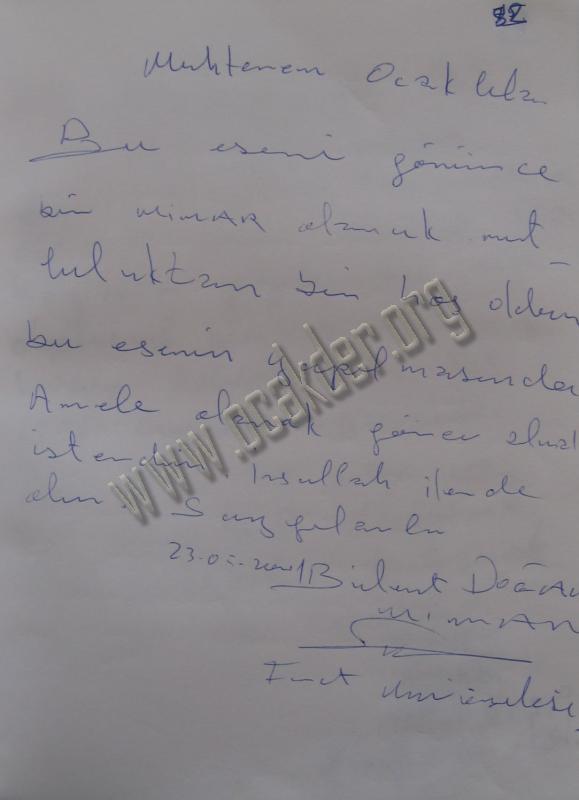 82
Muhterem Ocaklılar
Bu eseri görünce
bir MiMAR olarak mut_
luluktan bir hoş oldum
bu eserin yapılmasında
Amele olarak görev almak
isterdim. İnşallah ilerde
olur. Saygılarla
Bülent DOĞAN
MiMAR
Fırat Üniversitesi
www.ocakder.org